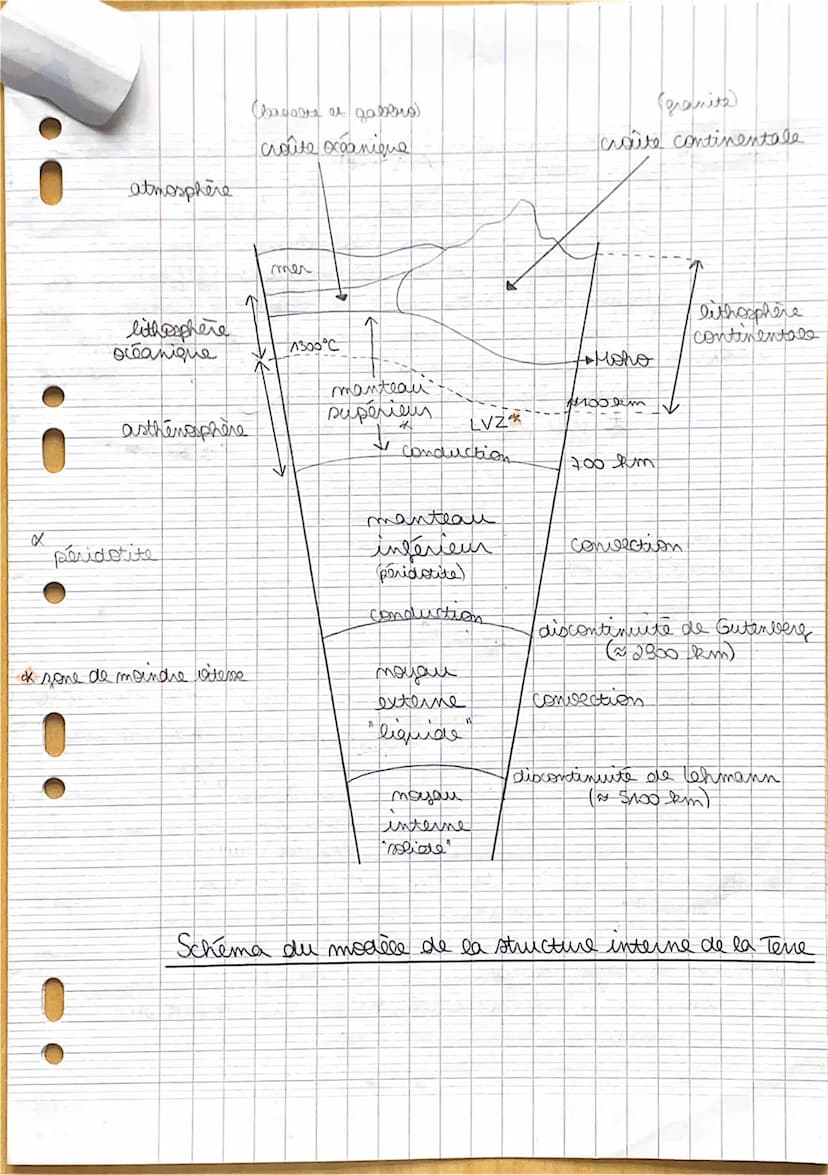 (basalte et gabbro)
croûte océanique
(granite)
croûte continentale
atmosphère
mer
lithosphère
océanique
1300°C
lithosphère
continentale
Moho
manteau
supérieur
*
LVZ*
100 km
asthénosphère
conduction
700 km
manteau
inférieur
(péridotite)
convection
* péridotite
conduction
discontinuité de Gutenberg
(≈ 2900 km)
* zone de moindre vitesse
noyau
externe
"liquide"
convection
discontinuité de Lehmann
(≈ 5100 km)
noyau
interne
"solide"
Schéma du modèle de la structure interne de la Terre